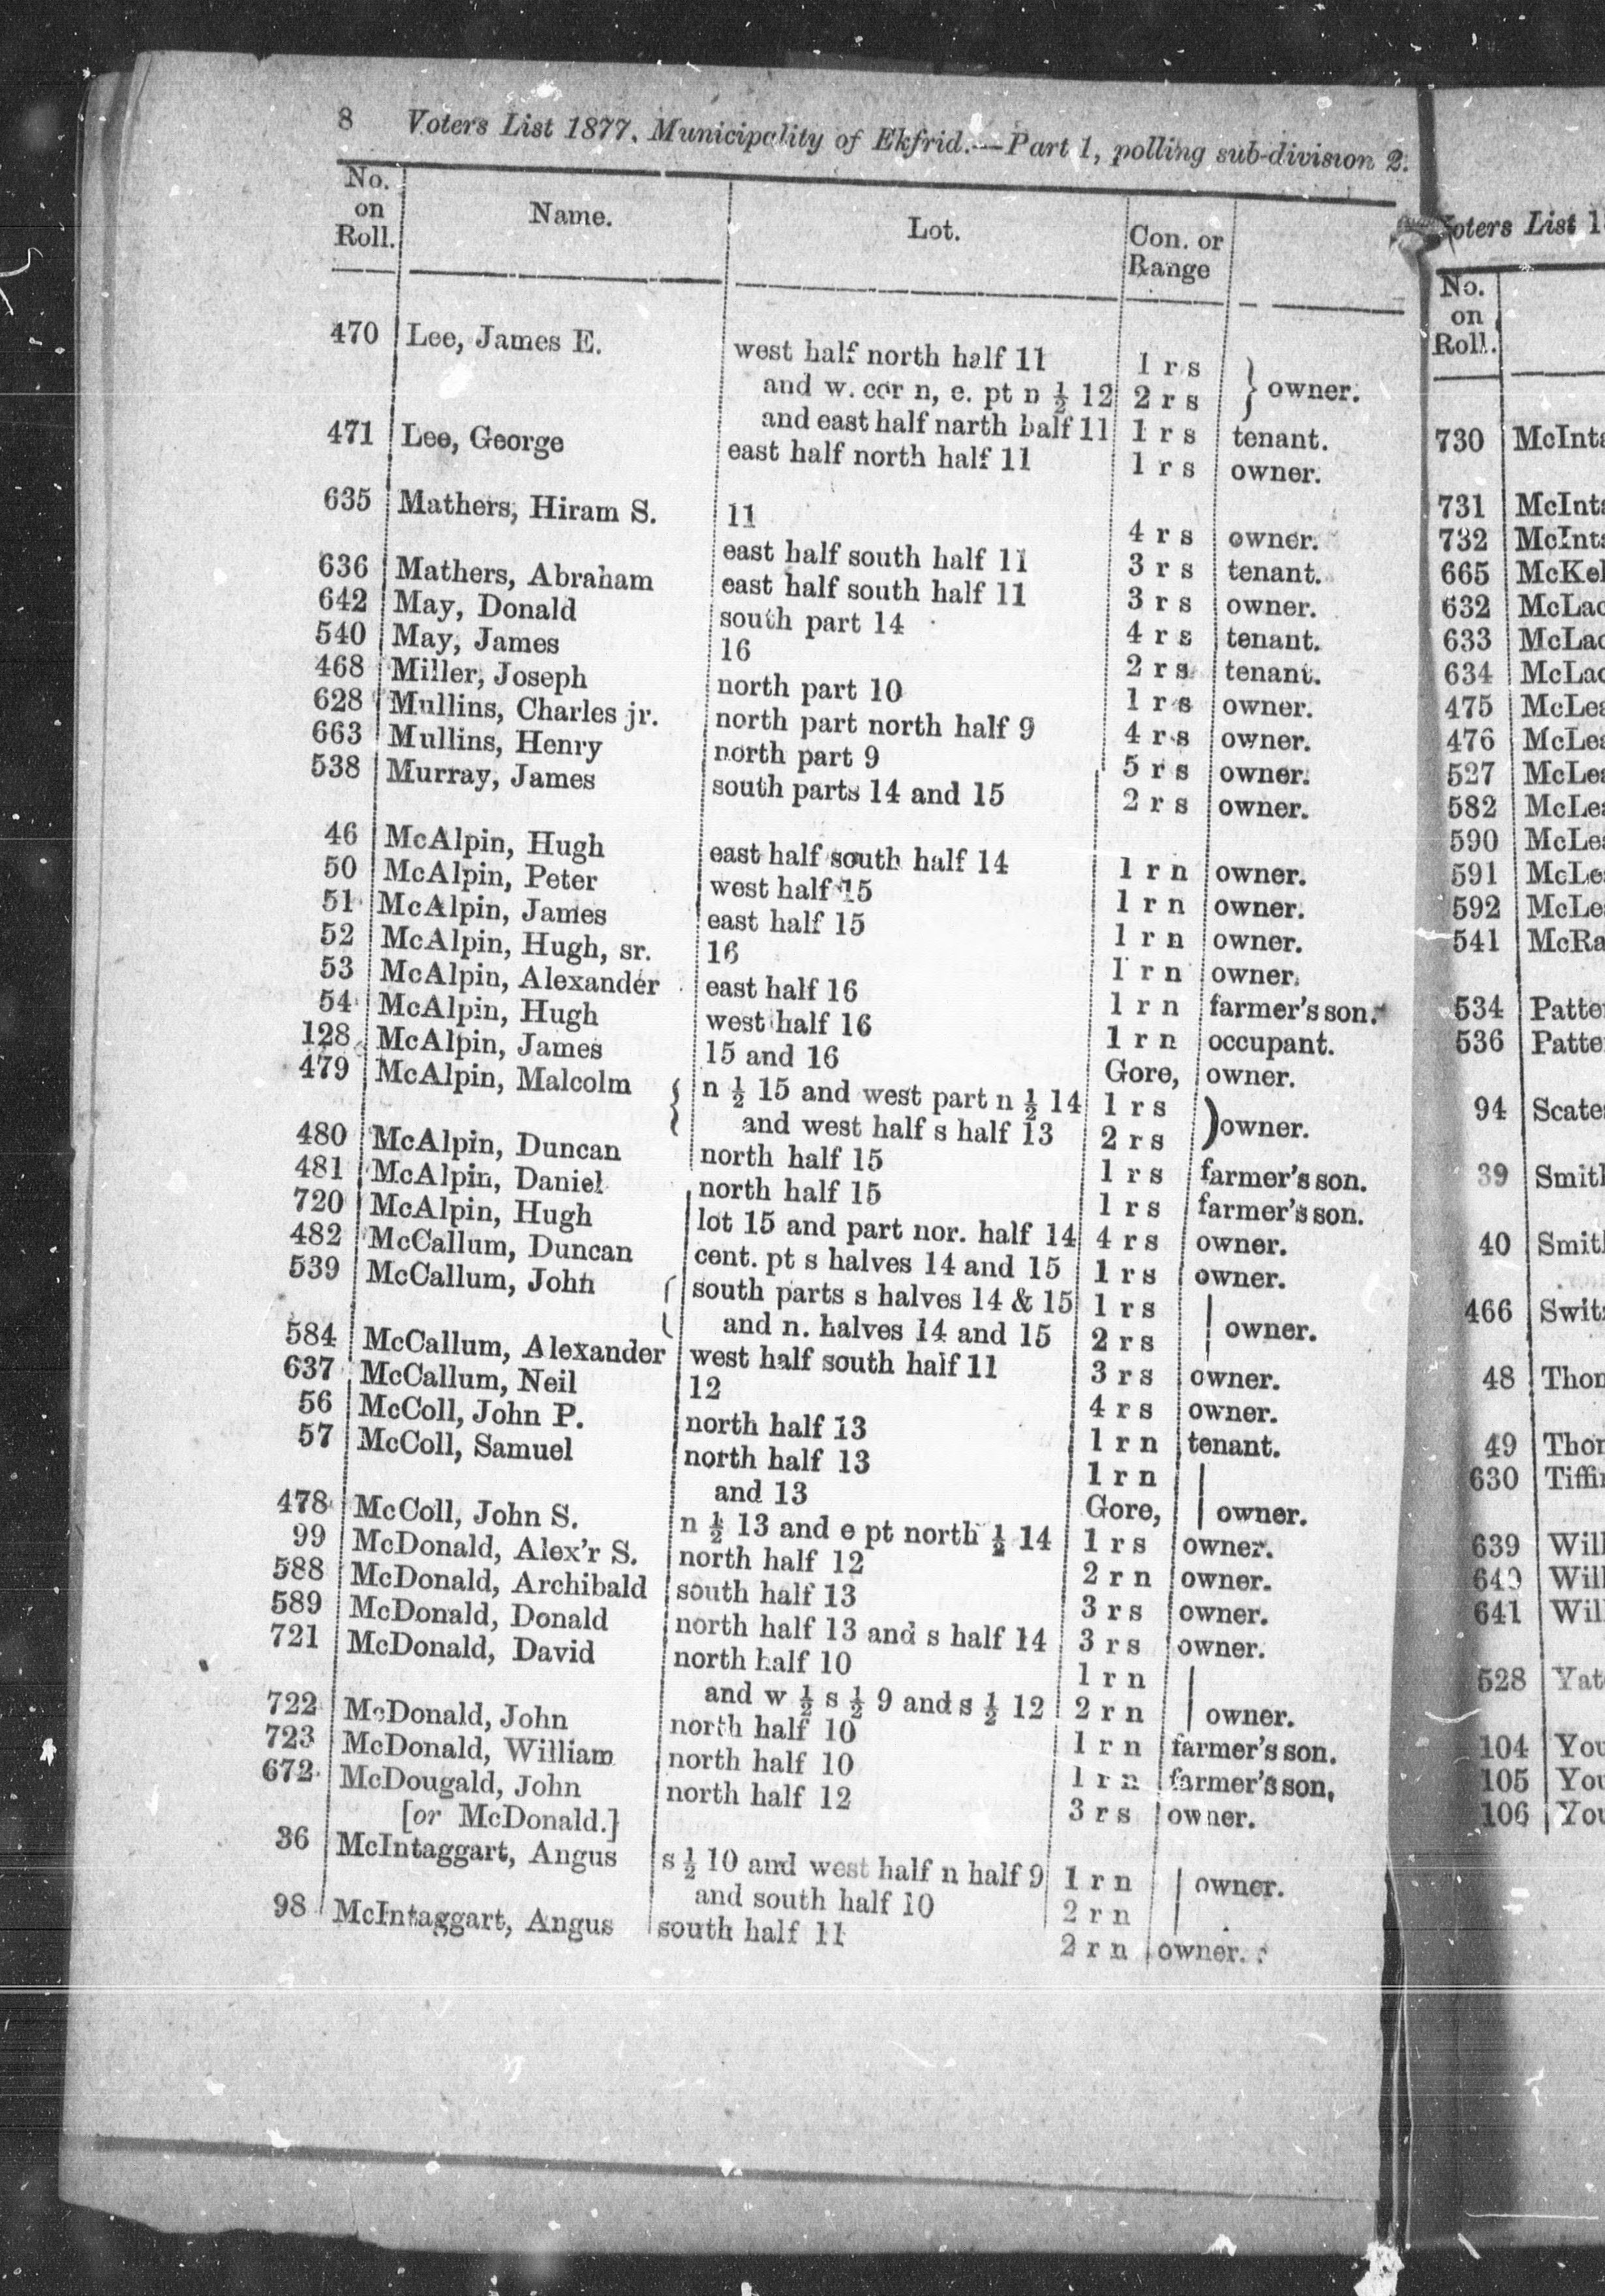 8 Voters List 1877. Municipality of Ekfrid.—Part 1, polling sub-division 2.
No. on Roll. Name. Lot. Con. or Range
470 Lee, James E. west half north half 11 1 r s } owner.
and w. cor n, e. pt n ½ 12 2 r s
and east half narth half 11 1 r s tenant.
471 Lee, George east half north half 11 1 r s owner.
635 Mathers, Hiram S. 11 4 r s owner.
east half south half 11 3 r s tenant.
636 Mathers, Abraham east half south half 11 3 r s owner.
642 May, Donald south part 14 4 r s tenant.
540 May, James 16 2 r s tenant.
468 Miller, Joseph north part 10 1 r s owner.
628 Mullins, Charles jr. north part north half 9 4 r s owner.
663 Mullins, Henry north part 9 5 r s owner.
538 Murray, James south parts 14 and 15 2 r s owner.
46 McAlpin, Hugh east half south half 14 1 r n owner.
50 McAlpin, Peter west half 15 1 r n owner.
51 McAlpin, James east half 15 1 r n owner.
52 McAlpin, Hugh, sr. 16 1 r n owner.
53 McAlpin, Alexander east half 16 1 r n farmer's son.
54 McAlpin, Hugh west half 16 1 r n occupant.
128 McAlpin, James 15 and 16 Gore, owner.
479 McAlpin, Malcolm { n ½ 15 and west part n ½ 14 1 r s ) owner.
and west half s half 13 2 r s
480 McAlpin, Duncan north half 15 1 r s farmer's son.
481 McAlpin, Daniel north half 15 1 r s farmer's son.
720 McAlpin, Hugh lot 15 and part nor. half 14 4 r s owner.
482 McCallum, Duncan cent. pt s halves 14 and 15 1 r s owner.
539 McCallum, John south parts s halves 14 & 15 1 r s owner.
and n. halves 14 and 15 2 r s
584 McCallum, Alexander west half south half 11 3 r s owner.
637 McCallum, Neil 12 4 r s owner.
56 McColl, John P. north half 13 1 r n tenant.
57 McColl, Samuel north half 13 1 r n
and 13 Gore, owner.
478 McColl, John S. n ½ 13 and e pt north ½ 14 1 r s owner.
99 McDonald, Alex'r S. north half 12 2 r n owner.
588 McDonald, Archibald south half 13 3 r s owner.
589 McDonald, Donald north half 13 and s half 14 3 r s owner.
721 McDonald, David north half 10 1 r n
and w ½ s ½ 9 and s ½ 12 2 r n owner.
722 McDonald, John north half 10 1 r n farmer's son.
723 McDonald, William north half 10 1 r n farmer's son,
672 McDougald, John north half 12 3 r s owner.
[or McDonald.]
36 McIntaggart, Angus s ½ 10 and west half n half 9 1 r n owner.
and south half 10 2 r n
98 McIntaggart, Angus south half 11 2 r n owner.
Voters List 1
No. on Roll.
730 McInta
731 McInta
732 McInta
665 McKel
632 McLac
633 McLac
634 McLac
475 McLea
476 McLea
527 McLea
582 McLea
590 McLea
591 McLea
592 McLea
541 McRa
534 Patter
536 Patter
94 Scates
39 Smith
40 Smith
466 Switz
48 Thom
49 Thom
630 Tiffin
639 Will
640 Will
641 Will
528 Yat
104 You
105 You
106 You